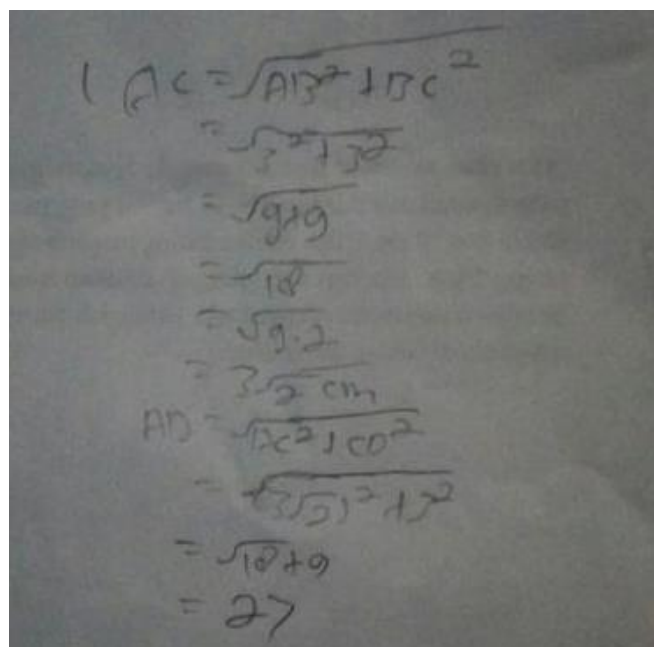 1 AC = √AB² + BC²
= √3² + 3²
= √9+9
= √18
= √9.2
= 3√2 cm
AD = √AC² + CD²
= √(3√2)² + 3²
= √18+9
= 27